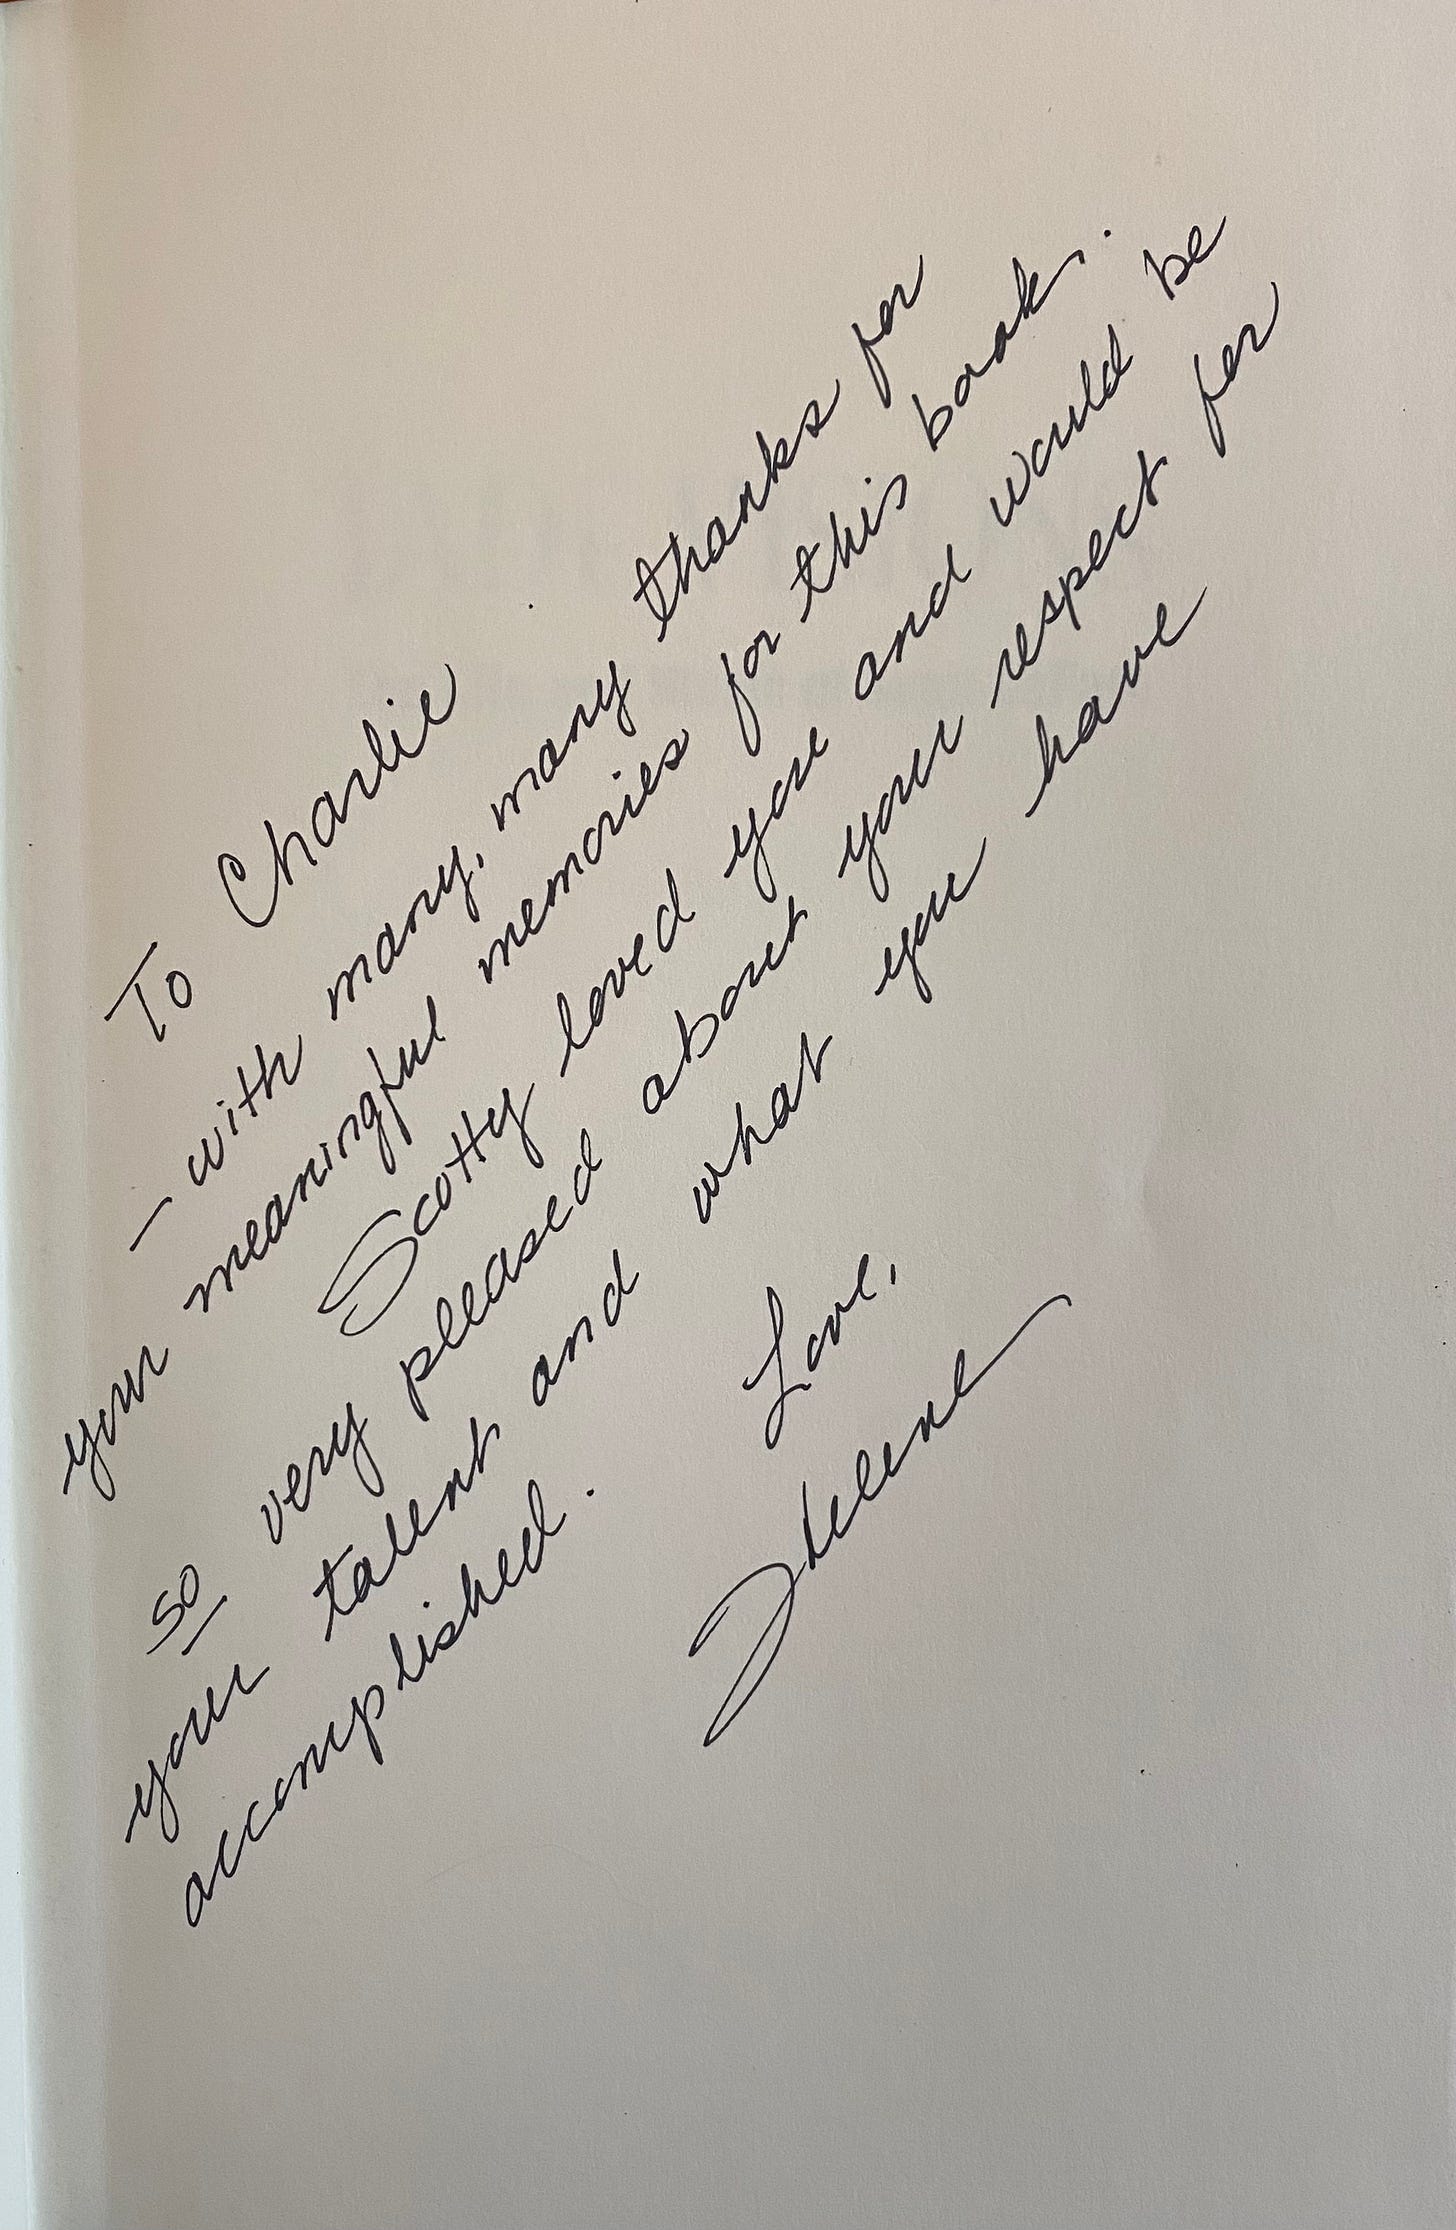 To Charlie
— with many, many thanks for
your meaningful memories for this book.
Scotty loved you and would be
so very pleased about your respect for
your talent and what you have
accomplished.
Love,
Helene